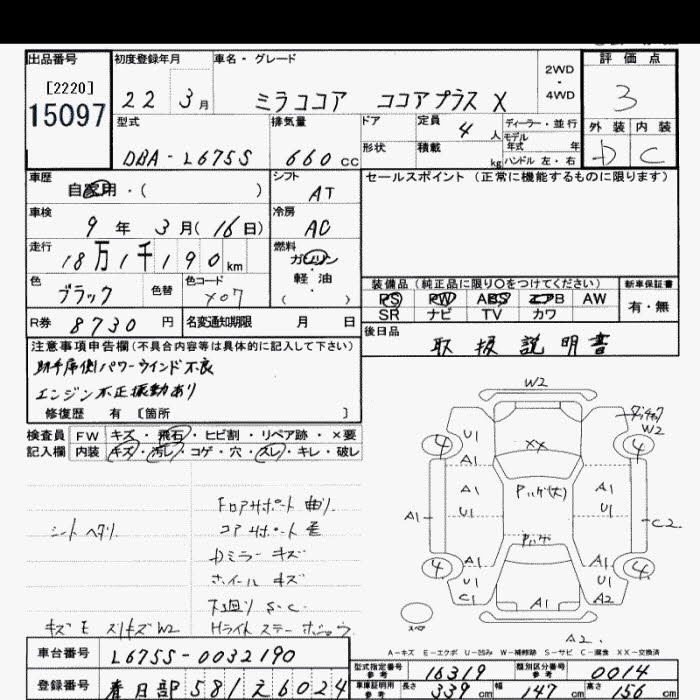 出品番号 初度登録年月 車名・グレード 2WD・4WD 評価点
[2220]
15097
22 3月 ミラココア ココアプラス X 3
型式 排気量 ドア 定員 4人 ディーラー・並行 外装 内装
モデル年式 年
形状 積載 kg ハンドル 左・右
DBA-L675S 660cc D C
車歴 自家用・( ) シフト AT セールスポイント (正常に機能するものに限ります)
車検 9年3月(16日) 冷房 AC
走行 18万1千190km 燃料 ガソリン・軽油 ( )
色 ブラック 色替 色コード X07
装備品(純正品に限り○をつけてください) 新車保証書
PS PW ABS エアB AW 有・無
SR ナビ TV カワ
R券 8730円 名変通知期限 月 日 後日品 取扱説明書
注意事項申告欄(不具合内容等は具体的に記入して下さい)
助手席側パワーウインド不良
エンジン不正振動あり
修復歴 有 〔箇所 〕
検査員 FW キズ・飛石・ヒビ割・リペア跡・×要
記入欄 内装 キズ・汚レ・コゲ・穴・スレ・キレ・破レ
シートヘタリ
Fロアサポート曲り
コアサポート
Dミラーキズ
ホイールキズ
下回りS.C
キズE スリキズW2
W2
W2
U1
A1
XX
4
4
A1
U1
Pハゲ(大)
A1
U1
A1
C2
Pハゲ
A1
U1
C1
A1
A1
U1
A2
4
4
スペア
A2
A-キズ E-エクボ U-凹み W-補修跡 S-サビ C-腐食 XX-交換済
車台番号 L675S-0032190
型式指定番号 参考 16319 類別区分番号 参考 0014
登録番号 春日部581え6024
車庫証明用 参考 長さ 339cm 幅 147cm 高さ 156cm